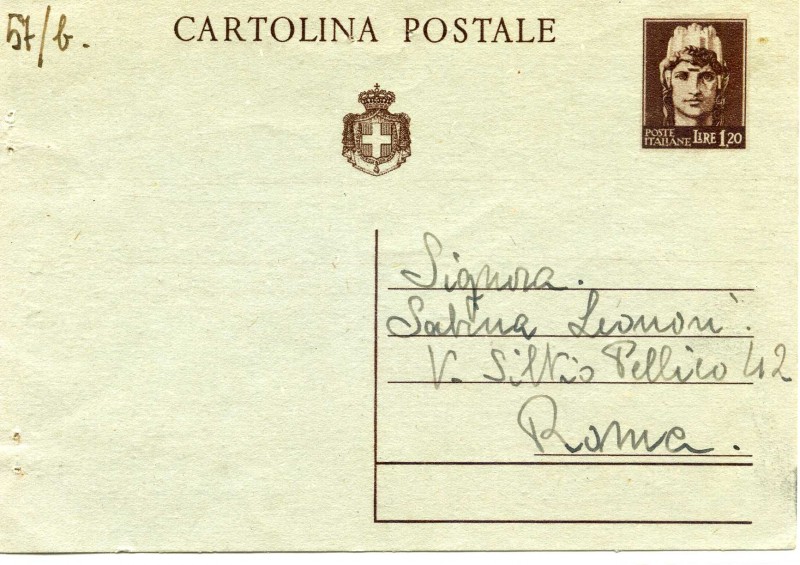 57/b.
CARTOLINA POSTALE
POSTE
ITALIANE LIRE 1,20
Signora.
Sabina Leonori.
V. Silvio Pellico 42
Roma.